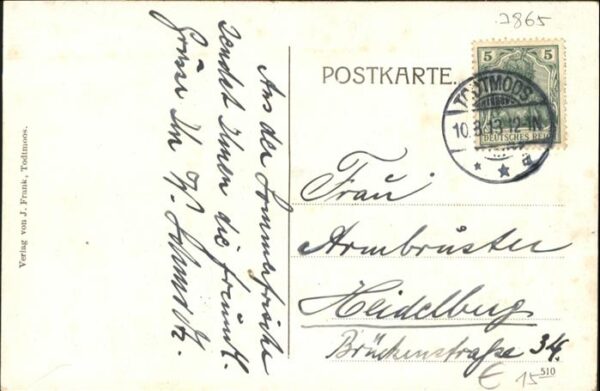 2865
POSTKARTE.
5 5
DEUTSCHES REICH
TODTMOOS
10.8.13.12-1N
Aus der Sommerfrische
sendet Ihnen die freundl.
Grüsse Ihr K.
Frau
Armbruster
Heidelberg
Brückenstraße 34.
Verlag von J. Frank, Todtmoos.
510
€ 15